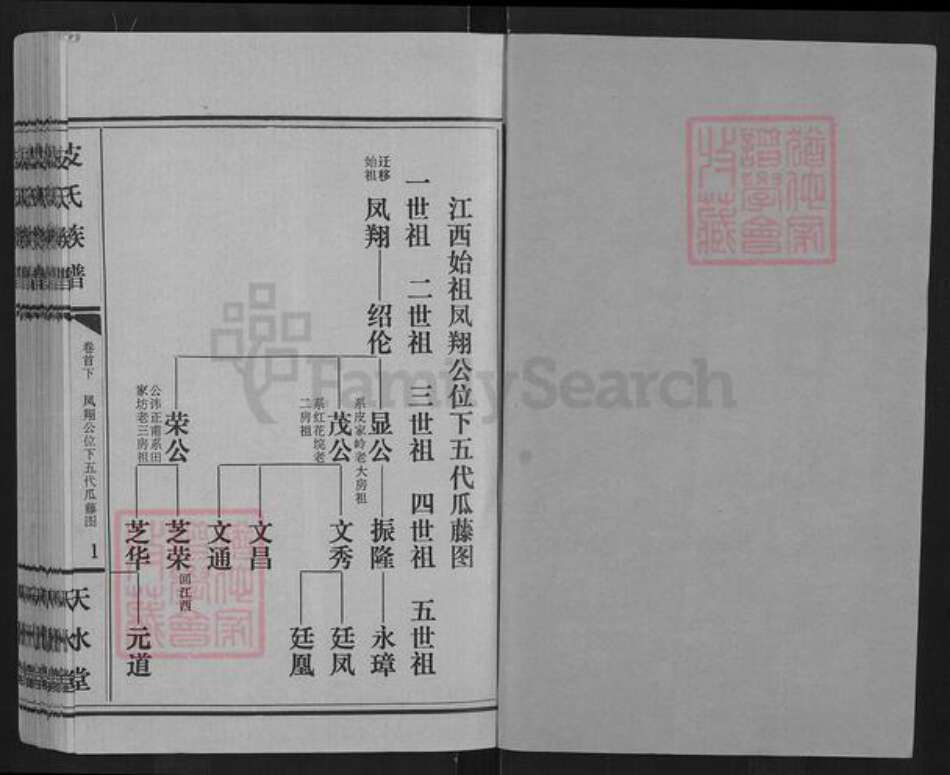 江西始祖凤翔公位下五代瓜藤图
一世祖 二世祖 三世祖 四世祖 五世祖
迁移
始祖
凤翔
绍伦
显公
系皮家岭老大房祖
茂公
系红花垸老
二房祖
荣公
公讳正甫系田
家坊老三房祖
振隆
文秀
文昌
文通
芝荣
回江西
芝华
永璋
廷凤
廷凰
元道
艾氏族谱
卷首下 凤翔公位下五代瓜藤图
1
天水堂
FamilySearch